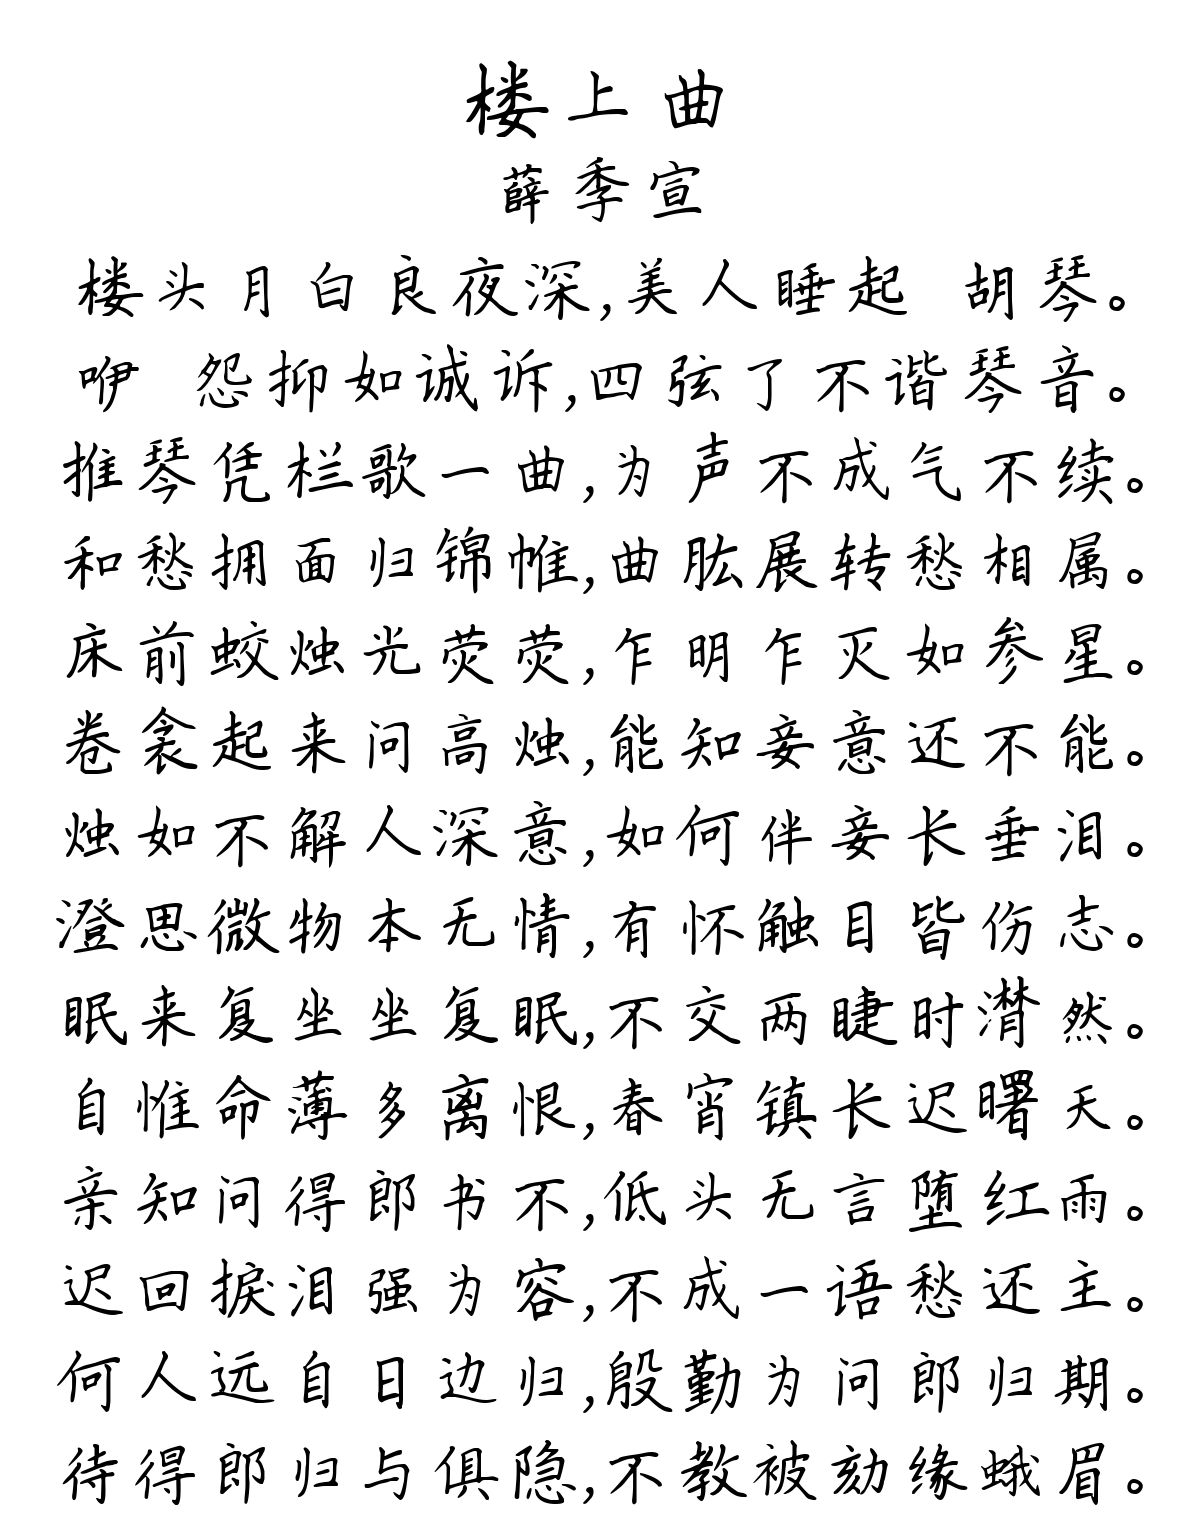 楼上曲
薛季宣
楼头月白良夜深,美人睡起 胡琴。
咿 怨抑如诚诉,四弦了不谐琴音。
推琴凭栏歌一曲,为声不成气不续。
和愁拥面归锦帷,曲肱展转愁相属。
床前蛟烛光荧荧,乍明乍灭如参星。
卷衾起来问高烛,能知妾意还不能。
烛如不解人深意,如何伴妾长垂泪。
澄思微物本无情,有怀触目皆伤志。
眠来复坐坐复眠,不交两睫时潸然。
自惟命薄多离恨,春宵镇长迟曙天。
亲知问得郎书不,低头无言堕红雨。
迟回捩泪强为容,不成一语愁还主。
何人远自日边归,殷勤为问郎归期。
待得郎归与俱隐,不教被劾缘蛾眉。